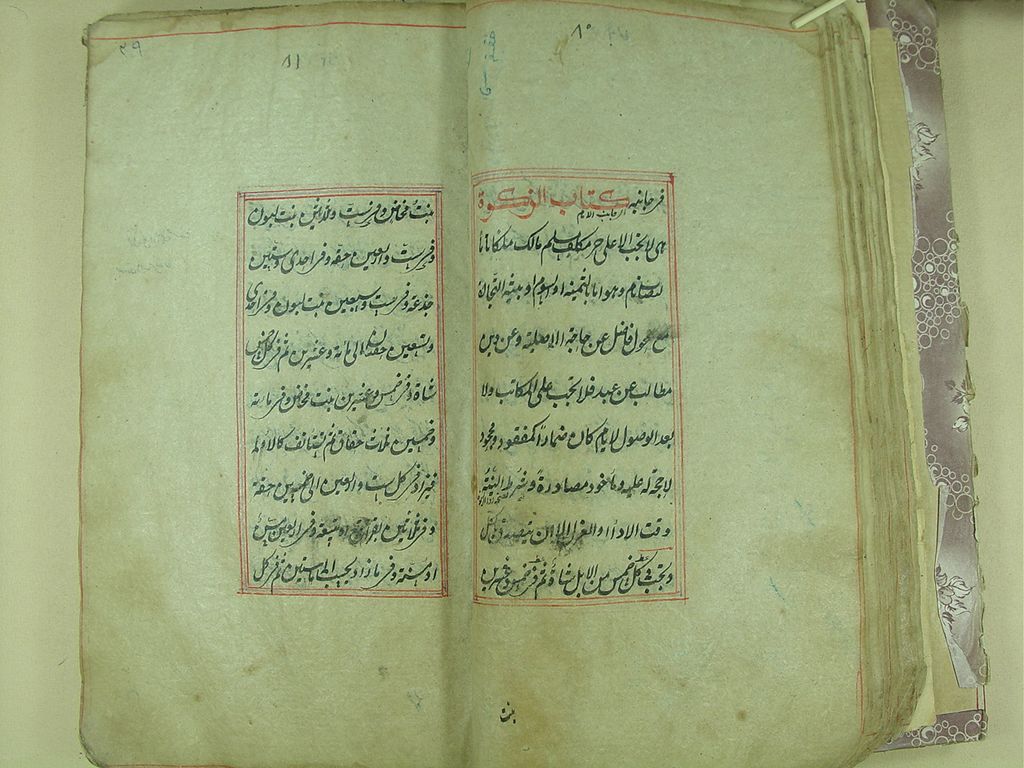 ٨٠
فى جانبه كتاب الزكوة
هى لا تجب الا على حر مكلف مسلم مالك ملكا تاما
لنصاب نام وهو اما بالثمنية او السوم او بنية التجارة
مع حول فاضل عن حاجة الاصلية وعن دين
مطالب عن عبد فلا تجب على المكاتب ولا
بعد الوصول لايام كان ضمارا كمفقود ومجحود
لا حجة له عليه وماخوذ مصادرة وشرط النية
وقت الاداء او العزل الا ان تصدق بكل
وتجب فى كل خمس من الابل شاة ثم فى خمس وعشرين
بنت
٣٩
٨١
بنت مخاض وفى ست وثلاثين بنت لبون
وفى ست واربعين حقة وفى احدى وستين
جذعة وفى ست وسبعين بنتا لبون وفى احدى
وتسعين حقتان الى مائة وعشرين ثم فى كل خمس
شاة وفى خمس وعشرين بنت مخاض وفى مائة
وخمسين ثلاث حقاق ثم تستانف كالاولى
فيزاد فى كل ست واربعين الى خمسين حقة
وفى ثلاثين بقرا تبيع او تبيعة وفى اربعين مسن
او مسنة وفى ما زاد يحسب الى ستين ثم فى كل